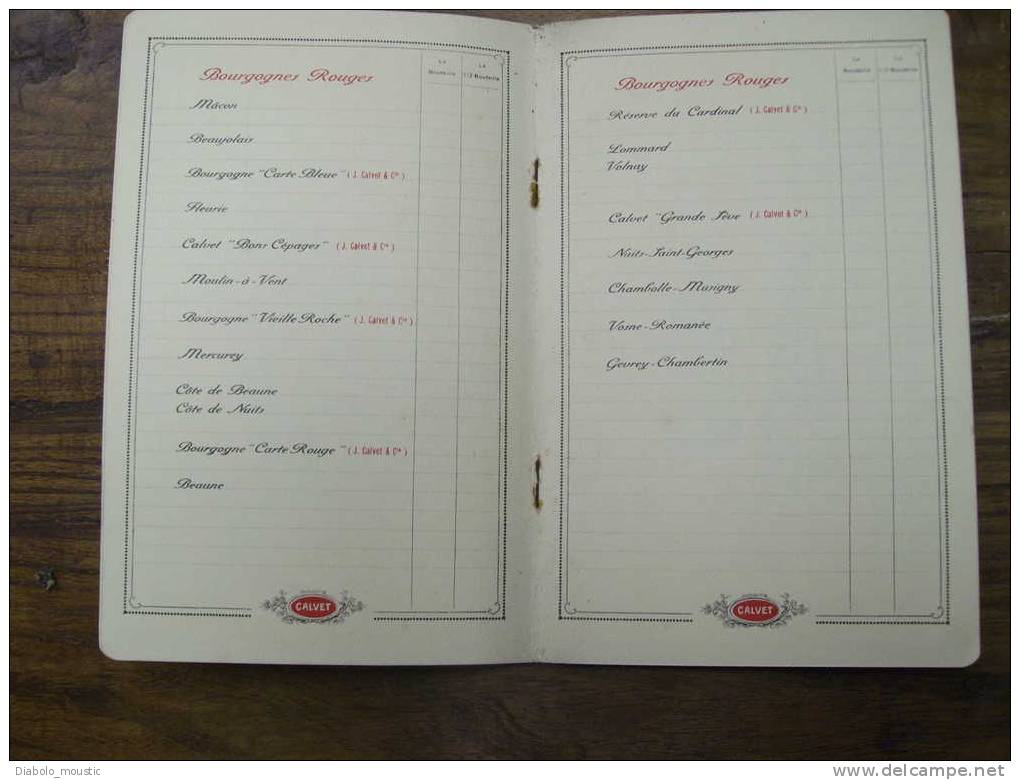 Bourgognes Rouges
La Bouteille
La 1/2 Bouteille
Mâcon
Beaujolais
Bourgogne "Carte Bleue" (J. Calvet & Cie)
Fleurie
Calvet "Bons Cépages" (J. Calvet & Cie)
Moulin-à-Vent
Bourgogne "Vieille Roche" (J. Calvet & Cie)
Mercurey
Côte de Beaune
Côte de Nuits
Bourgogne "Carte Rouge" (J. Calvet & Cie)
Beaune
CALVET
Bourgognes Rouges
La Bouteille
La 1/2 Bouteille
Réserve du Cardinal (J. Calvet & Cie)
Pommard
Volnay
Calvet "Grande Sève (J. Calvet & Cie)
Nuits-Saint-Georges
Chambolle-Musigny
Vosne-Romanée
Gevrey-Chambertin
CALVET
Diabolo_moustic
www.delcampe.net